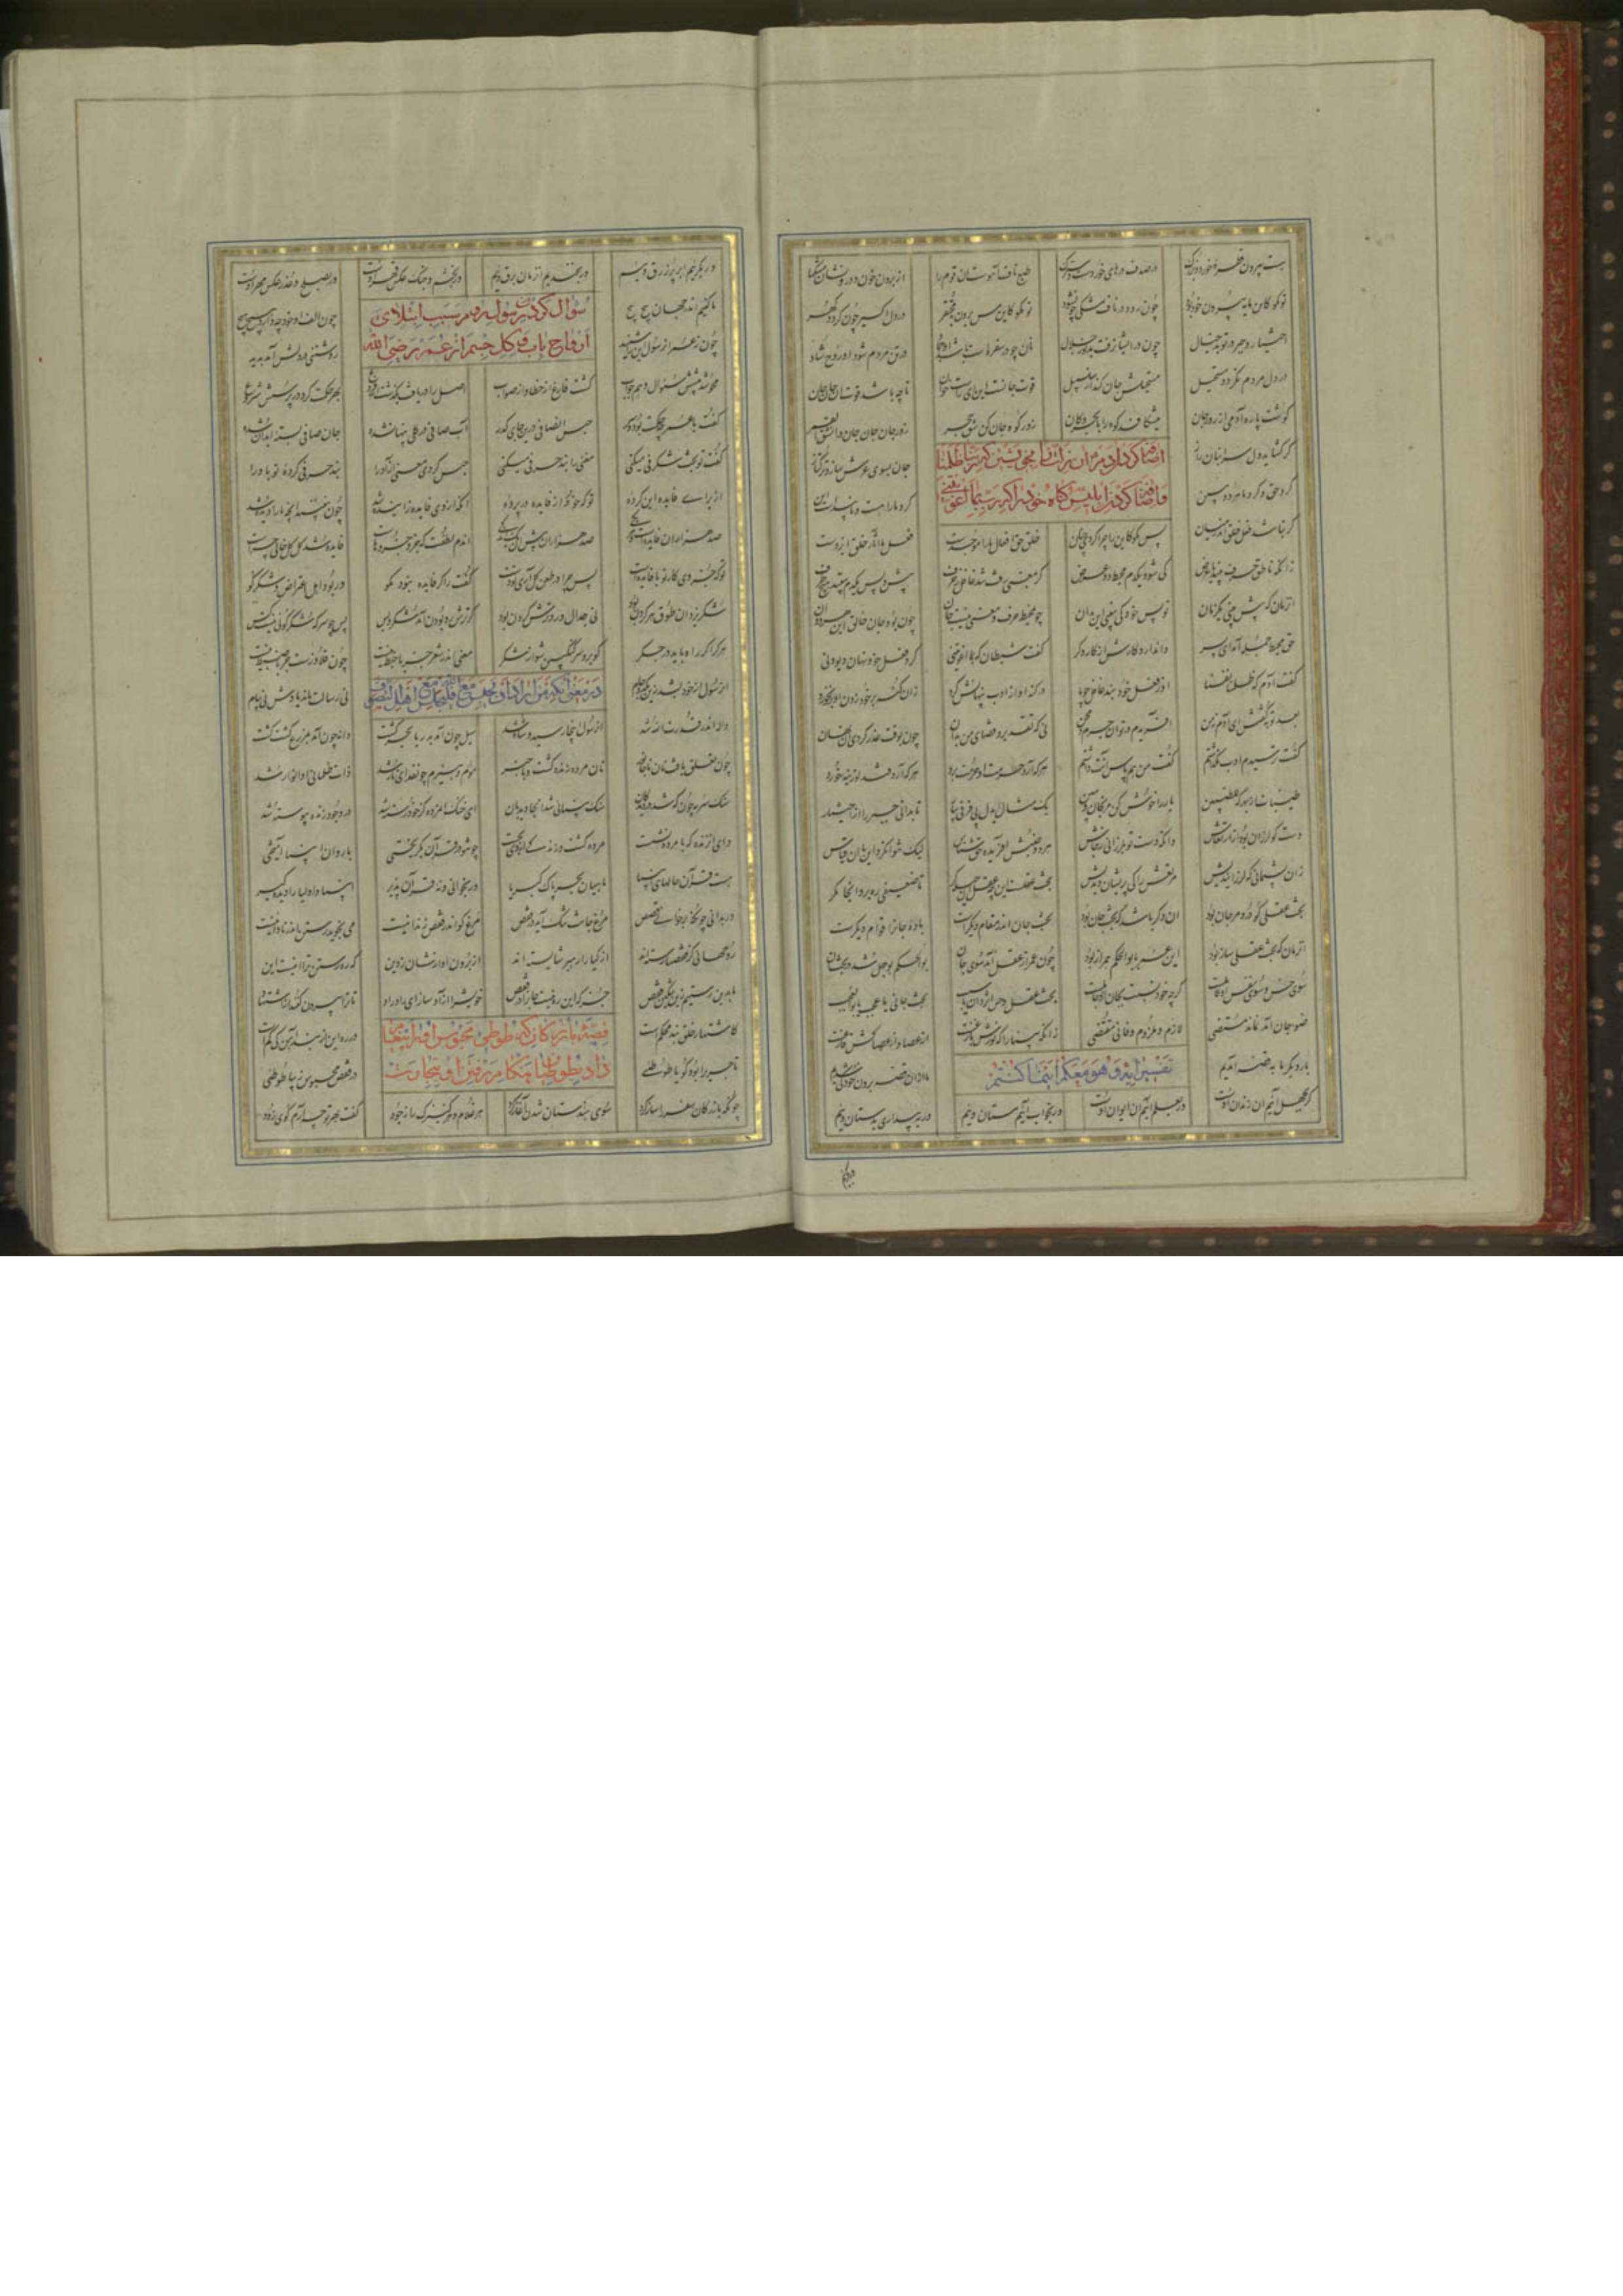 هست بیرون قطره خرد و بزرک در صدف درهای خردست و سترک طبع ناف آهوست آن قوم را از برون خون و درونشان مشکها
تو مکو کاین مایه بیرون خون بود چون رود در ناف مشکی چون شود تو مکو کاین مس برون بد محتقر در دل اکسیر چون کردد کهر
اختیار و جبر در تو بد خیال چون در ایشان رفت شد نور جلال نان چو در سفره است باشد آن جماد در تن مردم شود او روح شاد
در دل مردم نکردد مستحیل مستحیلش جان کند از سلسبیل قوت جانست این ای راست خوان تا چه باشد قوت آن جان جان
کوشت پاره آدمی از زور جان میشکافد کوه را با بحر و کان زور کوه جان کن شق حجر زور جان جان در انشق القمر
کر کشاید دل سر انبان راز جان بسوی عرش سازد ترکتاز
اضافه کردن آدم آن زلت را بخویشتن که ربنا ظلمنا
و اضافه کردن ابلیس کناه خود را که رب بما اغویتنی
کرد حق و کرد ما هر دو ببین کرد ما را هست دان پیداست این
کر نباشد فعل خلق اندر میان پس مکو کس را چرا کردی چنان خلق حق افعال ما را موجدست فعل ما آثار خلق ایزدست
زانکه ناطق حرف بیند یا غرض کی شود یکدم محیط دو عرض کر بمعنی رفت شد غافل ز حرف پیش و پس یکدم نبیند هیچ طرف
آنزمان که پیش بینی یکزمان تو پس خود کی ببینی این بدان چو محیط حرف و معنی نیست جان چون بود جان خالق این هر دوان
حق محیط جمله آمد ای پسر واندارد کارش از کار دکر کفت شیطان که بما اغویتنی کرد فعل خود نهان دیو دنی
کفت آدم که ظلمنا نفسنا او ز فعل خود نبد غافل چو ما در کنه او از ادب پنهانش کرد زان کنه بر خود زدن او بر بخورد
بعد توبه کفتش ای آدم نه من آفریدم در تو آن جرم و محن نی که تقدیر و قضای من بد آن چون بوقت عذر کردی آن نهان
کفت ترسیدم ادب نکذاشتم کفت من هم پاس آنت داشتم هر که آرد حرمت او حرمت برد هر که آرد قند لوزینه خورد
طیبات از بهر که للطیبین یار را خوش کن مرنجان و ببین یک مثال ای دل پی فرقی بیا تا بدانی جبر را از اختیار
دست کو لرزان بود از ارتعاش وانکه دستی تو بلرزانی ز جاش هر دو جنبش آفریده حق شناس لیک نتوان کرد این با آن قیاس
زان پشیمانی که لرزانیدیش مرتعش را کی پشیمان دیدیش بحث عقلست این چه عقل آن حیله‌کر تا ضعیفی ره برد آنجا مکر
بحث عقلی کر در و مرجان بود آن دکر باشد که بحث جان بود بحث جان اندر مقام دیکرست باده جان را قوام دیکرست
آنزمان که بحث عقلی ساز بود این عمر با بوالحکم همراز بود چون عمر از عقل آمد سوی جان بوالحکم بوجهل شد در بحث آن
سوی حس و سوی عقل او کاملست کرچه خود نسبت بجان او جاهلست بحث عقل و حس اثر دان یا سبب بحث جانی یا عجب یا بوالعجب
ضوء جان آمد نماند ای مستضی لازم و ملزوم و نافی مقتضی زانکه بینا را که نورش بازغست از عصا و از عصاکش فارغست
تفسیر آیه و هو معکم اینما کنتم
بار دیکر ما بقصه آمدیم ما از آن قصه برون خود کی شدیم
کر بجهل آییم آن زندان اوست ور بعلم آییم آن ایوان اوست ور بخواب آییم مستان ویم ور ببیداری بدستان ویم
ور بکرییم ابر پر زرق ویم ور بخندیم آنزمان برق ویم ور بخشم و جنک عکس قهر اوست ور بصلح و عذر عکس مهر اوست
ما کئیم اندر جهان پیچ پیچ چون الف او خود چه دارد هیچ هیچ
سوال کردن رسول روم از سبب ابتلای
ارواح باب و کل جسم از عمر رضی الله
چون ز عمر آن رسول این را شنید روشنی در دلش آمد پدید
محو شد پیشش سوال و هم جواب کشت فارغ از خطا و از صواب اصل را دریافت بکذشت از فروع بهر حکمت کرد در پرسش شروع
کفت با عمر چه حکمت بود و سر حبس آن صافی درین جای کدر آب صافی در کلی پنهان شده جان صافی بسته ابدان شده
کفت تو بحث شکرفی میکنی معنی را بند حرفی میکنی حبس کردی معنی آزاد را بند حرفی کرده تو باد را
از برای فایده این کرده تو که خود از فایده در پرده آنکه از وی فایده زاییده شد چون نبیند آنچه ما را دیده شد
صد هزاران فایده است و هر یکی صد هزاران پیش آن یک اندکی آن دم لطفش که جان جانهاست فایده شد کل کل خالی چراست
تو که جزوی کار تو با فایده است پس چرا در طعن کل آری تو دست کفت را کر فایده نبود مکو ور بود هل اعتراض و شکر کو
شکر یزدان طوق هر کردن بود نی جدال و رو ترش کردن بود کر ترش رو بودن آمد شکر و بس پس چو سرکه شکرکویی نیست کس
سرکه را کر راه باید در جکر کو برو سرکنکبین شو از شکر معنی اندر شعر جز با خبط نیست چون فلاسنکست آنرا ضبط نیست
در معنی آنکه من اراد ان یجلس مع الله فلیجلس مع اهل التصوف
آن رسول از خود بشد زین یکدو جام نی رسالت یاد ماندش نی پیام
واله اندر قدرت الله شد آن رسول اینجا رسید و شاه شد سیل چون آمد بدریا بحر کشت دانه چون آمد بمزرع کشت کشت
چون تعلق یافت نان با جانور نان مرده زنده کشت و با خبر موم و هیزم چون فدای نار شد ذات ظلمانی او انوار شد
سنک سرمه چون که شد در دیدکان سنک بینایی شد آنجا دیدبان ای خنک آن مرد کز خود رسته شد در وجود زنده پیوسته شد
وای آن زنده که با مرده نشست مرده کشت و زندکی از وی بجست چون تو در قرآن حق بکریختی با روان انبیا آمیختی
هست قرآن حالهای انبیا ماهیان بحر پاک کبریا ور بخوانی و نه قرآن پذیر انبیا و اولیا را دیده کیر
ور پذیرایی چو برخوانی قصص مرغ جانت تنک آید در قفص مرغ کو اندر قفص زندانیست می نجوید رستن از نادانیست
روحهایی کز قفصها رسته‌اند انبیای رهبر شایسته‌اند از برون آوازشان آید ز دین که ره رستن ترا اینست این
ما بدین رستیم زین تنکین قفص جز که این ره نیست چاره این قفص خویش را رنجور سازی زار زار تا ترا بیرون کنند از اشتهار
کاشتهار خلق بند محکمست در ره این از بند آهن کی کمست
قصه بازرکان که طوطی محبوس او را پیغام
داد بطوطیان هنکام رفتن او بتجارت
تاجری را بود کویا طوطئی در قفص محبوس زیبا طوطئی
چونکه بازرکان سفر را ساز کرد سوی هندستان شدن آغاز کرد هر غلام و هر کنیزک را ز جود کفت بهر تو چه آرم کوی زود